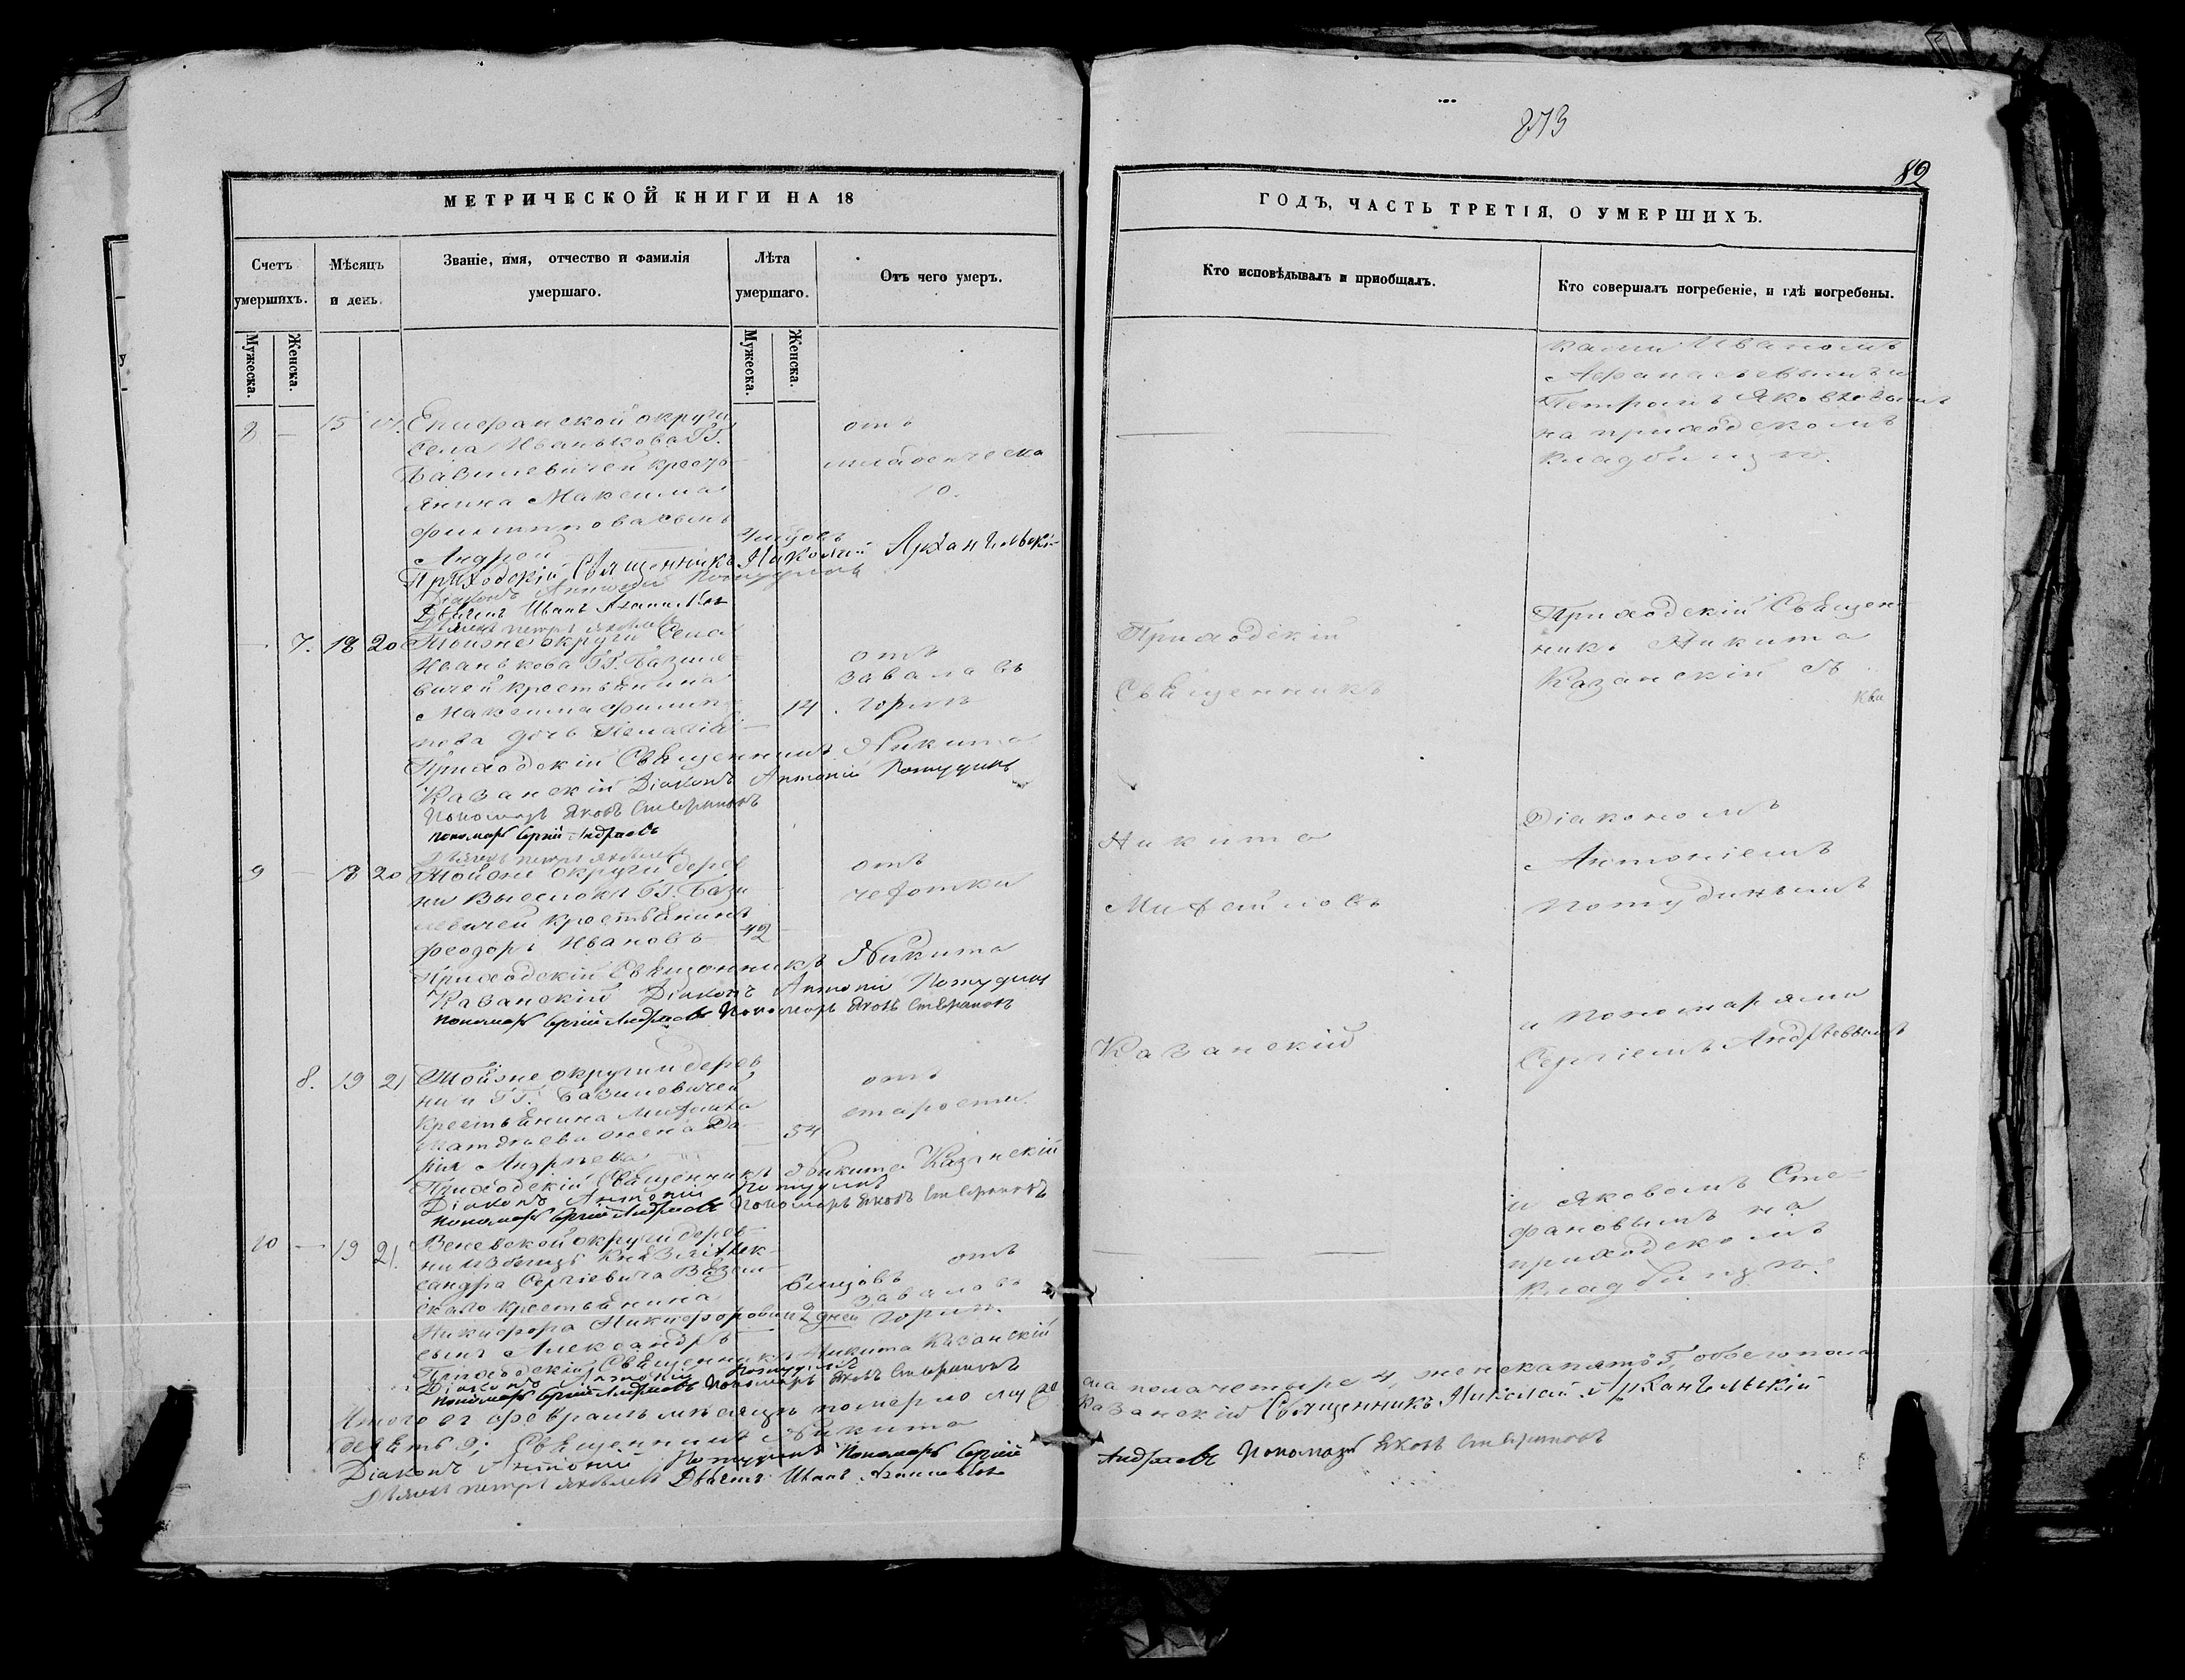 873
82
МЕТРИЧЕСКОЙ КНИГИ НА 18
ГОДЪ, ЧАСТЬ ТРЕТІЯ, О УМЕРШИХЪ.
Счетъ умершихъ.
Мѣсяцъ и день.
Званіе, имя, отчество и фамилія умершаго.
Лѣта умершаго.
Отъ чего умеръ.
Кто исповѣдывалъ и приобщалъ.
Кто совершалъ погребеніе, и гдѣ погребены.
Мужеска.
Женска.
Мужеска.
Женска.
8 — 15
Епифанской округи
села Иванькова ГГ.
Базилевичей кресть-
янина Максима
Филиппова сынъ
Андрей
отъ
младенческа
Приходскій Священникъ Николай Архангельскі
Діаконъ Антоній Потудинъ
Дьячекъ Иванъ
Дьячекъ Петръ Яковлевъ
ками Иваномъ
Петромъ Яковлевымъ
на приходскомъ
кладбищѣ.
— 7. 18 20
Тойже округи села
Иванькова ГГ. Базиле-
вичей крестьянина
Максима Филип-
пова дочь
14
отъ
завала въ
горлѣ
Приходскій Священникъ Никита
Казанскій Діаконъ Антоній Потудинъ
Пономарь Яковъ Стефановъ
Пономарь Сергій Андреевъ
Дьячекъ Петръ Яковлевъ
Приходскій
Священникъ
Никита
Казанскій
Приходскій Священ-
никъ Никита
Казанскій съ
Діакономъ
Антоніемъ
Потудинымъ
и пономарями
Сергіемъ Андреевымъ
и Яковомъ Сте-
фановымъ на
приходскомъ
кладбищѣ.
9 — 18 20
Тойже округи дерев
ни ГГ. Бази-
левичей крестьянинъ
Феодоръ Ивановъ
42
отъ
чехотки
Приходскій Священникъ Никита
Казанскій Діаконъ Антоній Потудинъ
Пономарь Сергій Андреевъ Пономарь Яковъ Стефановъ
8. 19 21
Тойже округи дерев
ни ГГ. Базилевичей
крестьянина
Матвѣева жена Да-
рія Андреева
54
отъ
старости
Приходскій Священникъ Никита Казанскій
Діаконъ Антоній Потудинъ
Пономарь Сергій Андреевъ Пономарь Яковъ Стефановъ
10 — 19 21.
Веневской округи дерев-
ни Князя Алек-
сандра Сергіевича Вязем-
скаго крестьянина
Никифора Никифорова
сынъ Александръ
2 дней
отъ
завала въ
горлѣ.
Приходскій Священникъ Никита Казанскій
Діаконъ Антоній Потудинъ
Пономарь Сергій Андреевъ Пономарь Яковъ Стефановъ
Итого въ февралѣ мѣсяцѣ померло муже
ска пола четыре 4, женска пять 5, обоего пола
девять 9; Священникъ Никита
Казанскій Священникъ Николай Архангельскій
Діаконъ Антоній Потудинъ Пономарь Сергій
Андреевъ Пономарь Яковъ Стефановъ
Дьячекъ Петръ Яковлевъ Дьячекъ Иванъ